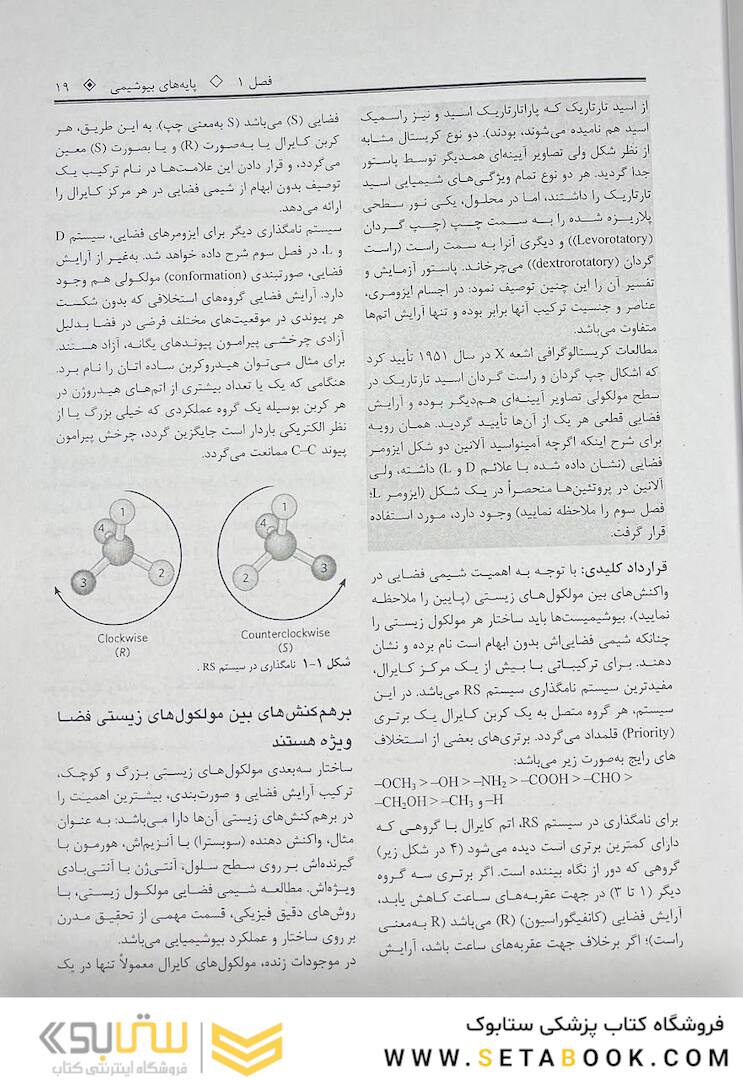 فصل ۱ ◇ پایه‌های بیوشیمی ◈ ۱۹
از اسید تارتاریک که پاراتارتاریک اسید و نیز راسمیک
اسید هم نامیده می‌شوند، بودند). دو نوع کریستال مشابه
از نظر شکل ولی تصاویر آیینه‌ای همدیگر توسط پاستور
جدا گردید. هر دو نوع تمام ویژگی‌های شیمیایی اسید
تارتاریک را داشتند، اما در محلول، یکی نور سطحی
پلاریزه شده را به سمت چپ (چپ گردان
(Levorotatory)) و دیگری آنرا به سمت راست (راست
گردان (dextrorotatory)) می‌چرخاند. پاستور آزمایش و
تفسیر آن را این چنین توصیف نمود: در اجسام ایزومری،
عناصر و جنسیت ترکیب آنها برابر بوده و تنها آرایش اتم‌ها
متفاوت می‌باشد.
مطالعات کریستالوگرافی اشعه X در سال ۱۹۵۱ تأیید کرد
که اشکال چپ گردان و راست گردان اسید تارتاریک در
سطح مولکولی تصاویر آیینه‌ای هم‌دیگر بوده و آرایش
فضایی قطعی هر یک از آن‌ها تأیید گردید. همان رویه
برای شرح اینکه اگرچه آمینواسید آلانین دو شکل ایزومر
فضایی (نشان داده شده با علائم D و L) داشته، ولی
آلانین در پروتئین‌ها منحصراً در یک شکل (ایزومر L؛
فصل سوم را ملاحظه نمایید) وجود دارد، مورد استفاده
قرار گرفت.
قرارداد کلیدی: با توجه به اهمیت شیمی فضایی در
واکنش‌های بین مولکول‌های زیستی (پایین را ملاحظه
نمایید)، بیوشیمیست‌ها باید ساختار هر مولکول زیستی را
چنانکه شیمی فضایی‌اش بدون ابهام است نام برده و نشان
دهند. برای ترکیباتی با بیش از یک مرکز کایرال،
مفیدترین سیستم نامگذاری سیستم RS می‌باشد. در این
سیستم، هر گروه متصل به یک کربن کایرال یک برتری
(Priority) قلمداد می‌گردد. برتری‌های بعضی از استخلاف
های رایج به‌صورت زیر می‌باشد:
–OCH₃ > –OH > –NH₂ > –COOH > –CHO >
–CH₂OH > –CH₃ و –H
برای نامگذاری در سیستم RS، اتم کایرال با گروهی که
دارای کمترین برتری است دیده می‌شود (۴ در شکل زیر)
گروهی که دور از نگاه بیننده است. اگر برتری سه گروه
دیگر (۱ تا ۳) در جهت عقربه‌های ساعت کاهش یابد،
آرایش فضایی (کانفیگوراسیون) (R) می‌باشد (R به‌معنی
راست)؛ اگر برخلاف جهت عقربه‌های ساعت باشد، آرایش
فضایی (S) می‌باشد (S به‌معنی چپ). به این طریق، هر
کربن کایرال یا به‌صورت (R) و یا بصورت (S) معین
می‌گردد، و قرار دادن این علامت‌ها در نام ترکیب یک
توصیف بدون ابهام از شیمی فضایی در هر مرکز کایرال را
ارائه می‌دهد.
سیستم نامگذاری دیگر برای ایزومرهای فضایی، سیستم D
و L، در فصل سوم شرح داده خواهد شد. به‌غیر از آرایش
فضایی، صورتبندی (conformation) مولکولی هم وجود
دارد. آرایش فضایی گروه‌های استخلافی که بدون شکست
هر پیوندی در موقعیت‌های مختلف فرضی در فضا بدلیل
آزادی چرخشی پیرامون پیوندهای یگانه، آزاد هستند.
برای مثال می‌توان هیدروکربن ساده اتان را نام برد.
هنگامی که یک یا تعداد بیشتری از اتم‌های هیدروژن در
هر کربن بوسیله یک گروه عملکردی که خیلی بزرگ یا از
نظر الکتریکی باردار است جایگزین گردد، چرخش پیرامون
پیوند C–C ممانعت می‌گردد.
1
4
3
2
Clockwise
(R)
1
4
2
3
Counterclockwise
(S)
شکل ۱-۱ نامگذاری در سیستم RS.
برهم‌کنش‌های بین مولکول‌های زیستی فضا
ویژه هستند
ساختار سه‌بعدی مولکول‌های زیستی بزرگ و کوچک،
ترکیب آرایش فضایی و صورتبندی، بیشترین اهمیت را
در برهم‌کنش‌های زیستی آن‌ها دارا می‌باشد: به عنوان
مثال، واکنش دهنده (سوبسترا) با آنزیم‌اش، هورمون با
گیرنده‌اش بر روی سطح سلول، آنتی‌ژن با آنتی‌بادی
ویژه‌اش. مطالعه شیمی فضایی مولکول زیستی، با
روش‌های دقیق فیزیکی، قسمت مهمی از تحقیق مدرن
بر روی ساختار و عملکرد بیوشیمیایی می‌باشد.
در موجودات زنده، مولکول‌های کایرال معمولاً تنها در یک
فروشگاه کتاب پزشکی ستابوک
WWW.SETABOOK.COM
ستابوک
فروشگاه اینترنتی کتاب